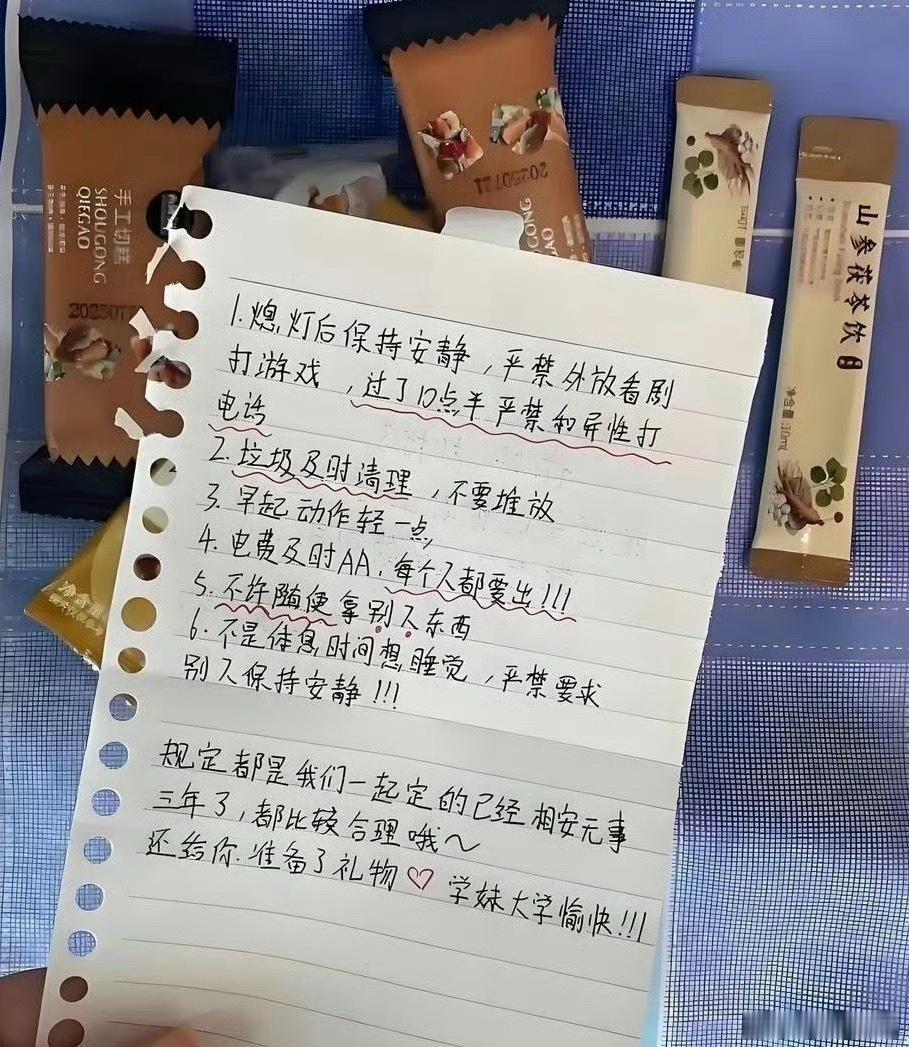 手工切糕
SHOUGONG
QIEGAO
20250721
GONG
山参茯苓饮
净含量:30mL
1.熄灯后保持安静,严禁外放看剧
打游戏,过了10点半严禁和异性打
电话
2.垃圾及时清理,不要堆放
3.早起动作轻一点
4.电费及时AA,每个人都要出!!!
5.不许随便拿别人东西
6.不是休息时间想睡觉,严禁要求
别人保持安静!!!
规定都是我们一起定的已经相安无事
三年了,都比较合理哦~
还给你准备了礼物♡ 学妹大学愉快!!!